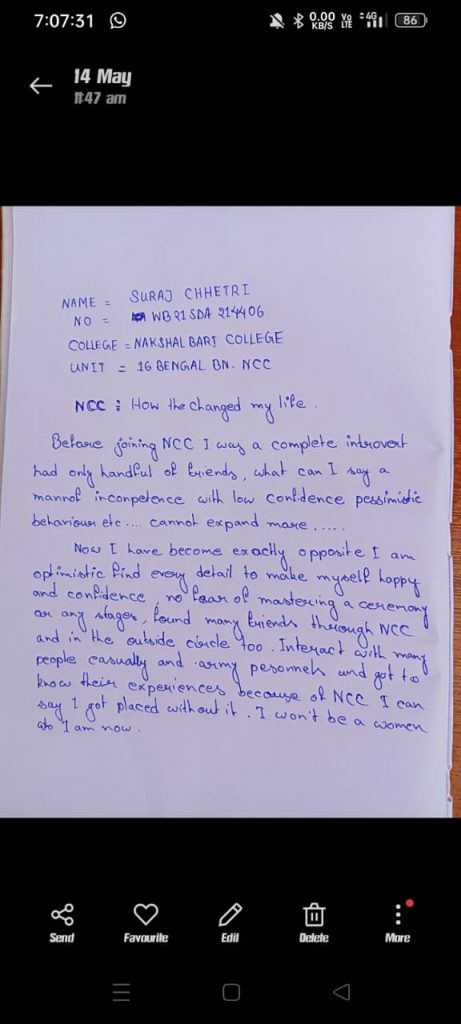 7:07:31
0.00 KB/S Vo LTE 4G 86
14 May
11:47 am
NAME = SURAJ CHHETRI
NO = WB21SDA 214406
COLLEGE = NAKSHALBARI COLLEGE
UNIT = 16 BENGAL BN. NCC
NCC : How the changed my life.
Before joining NCC I was a complete introvert
had only handful of friends, what can I say a
mannof inconpetence with low confidence pessimistic
behaviour etc.... cannot expand more .....
Now I have become exactly opposite I am
optimistic find every detail to make myself happy
and confidence, no fear of mastering a ceremony
or any stages, found many friends through NCC
and in the outside circle too. Interact with many
people casually and army pesonneh and got to
know their experiences because of NCC I can
say I got placed without it. I won't be a women
who I am now.
Send
Favourite
Edit
Delete
More